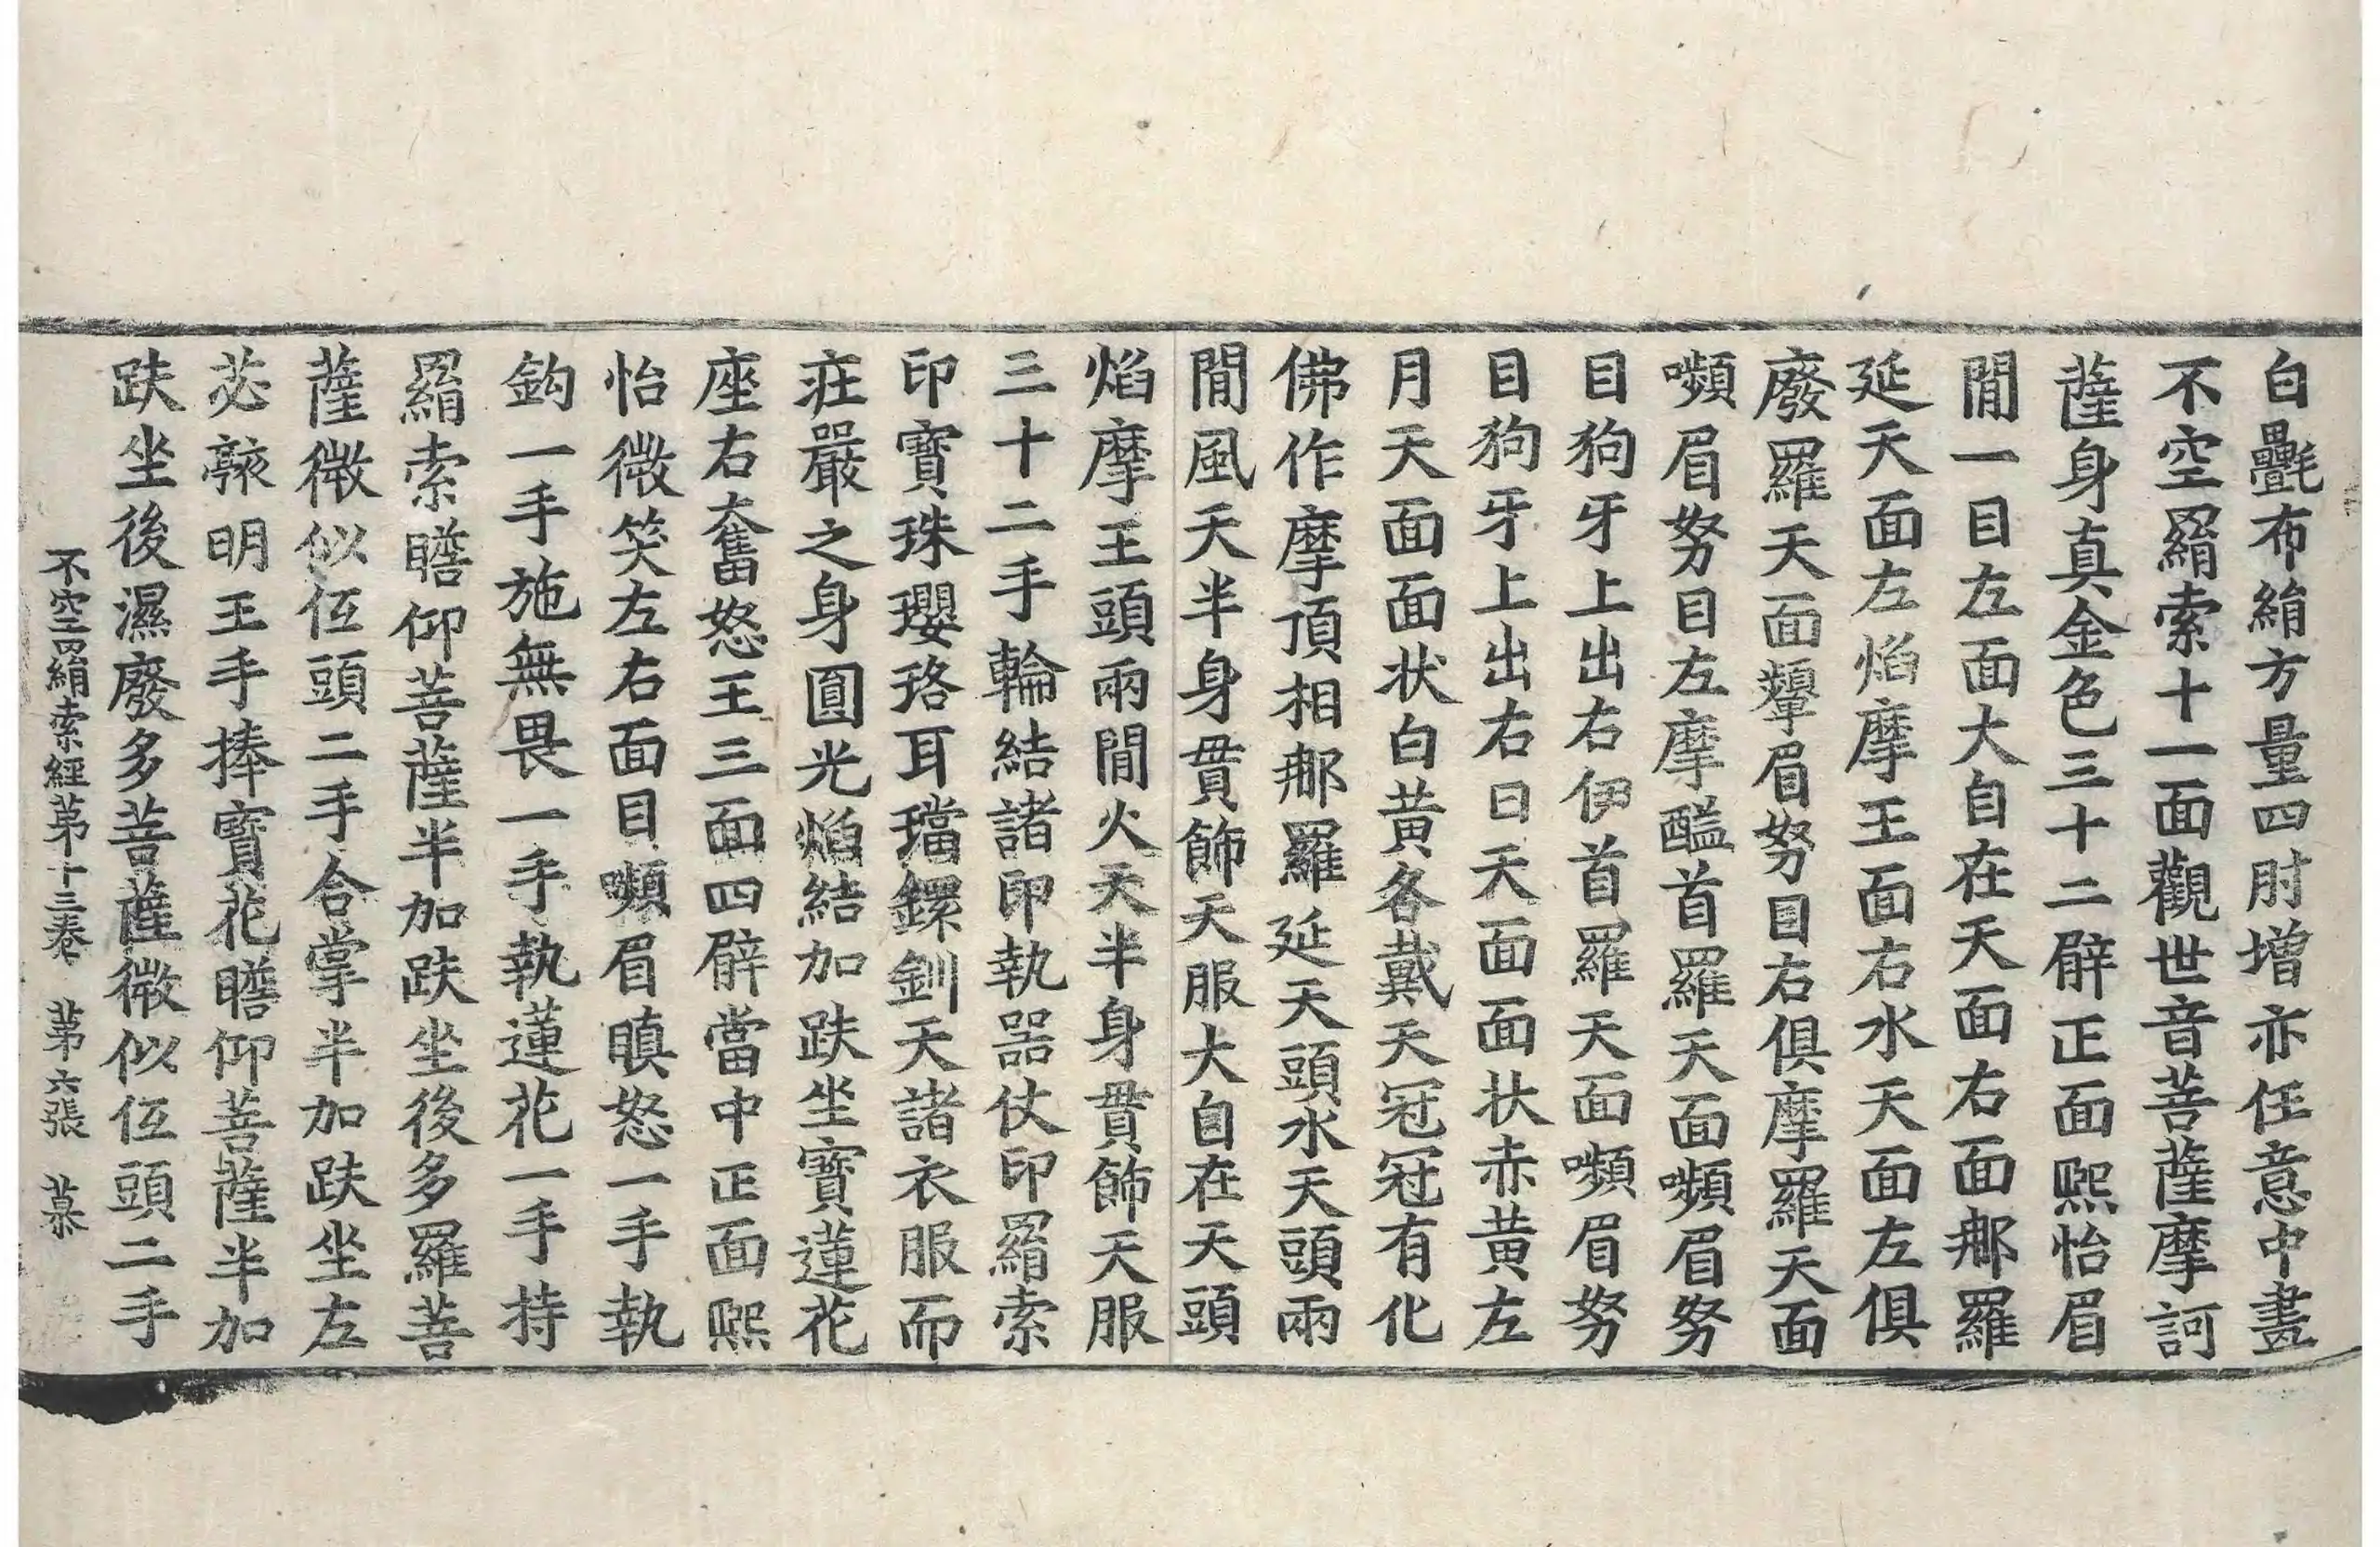 白㲲布絹方量四肘增亦任意中畫
不空羂索十一面觀世音菩薩摩訶
薩身真金色三十二臂正面熙怡眉
閒一目左面大自在天面右面那羅
延天面左焰摩王面右水天面左俱
廢羅天面顰眉努目右俱摩羅天面
嚬眉努目左摩醯首羅天面嚬眉努
目狗牙上出右伊首羅天面嚬眉努
目狗牙上出右日天面面状赤黃左
月天面面状白黃各戴天冠冠有化
佛作摩頂相那羅延天頭水天頭兩
閒風天半身貫飾天服大自在天頭
焰摩王頭兩閒火天半身貫飾天服
三十二手輪結諸印執器仗印羂索
印寶珠瓔珞耳璫鐶釧天諸衣服而
莊嚴之身圓光焰結加趺坐寶蓮花
座右奮怒王三面四臂當中正面熙
怡微笑左右面目嚬眉瞋怒一手執
鈎一手施無畏一手執蓮花一手持
羂索瞻仰菩薩半加趺坐後多羅菩
薩微似低頭二手合掌半加趺坐左
苾明王手捧寶花瞻仰菩薩半加
趺坐後濕廢多菩薩微似低頭二手
不空羂索經第十三卷 第六張 慕